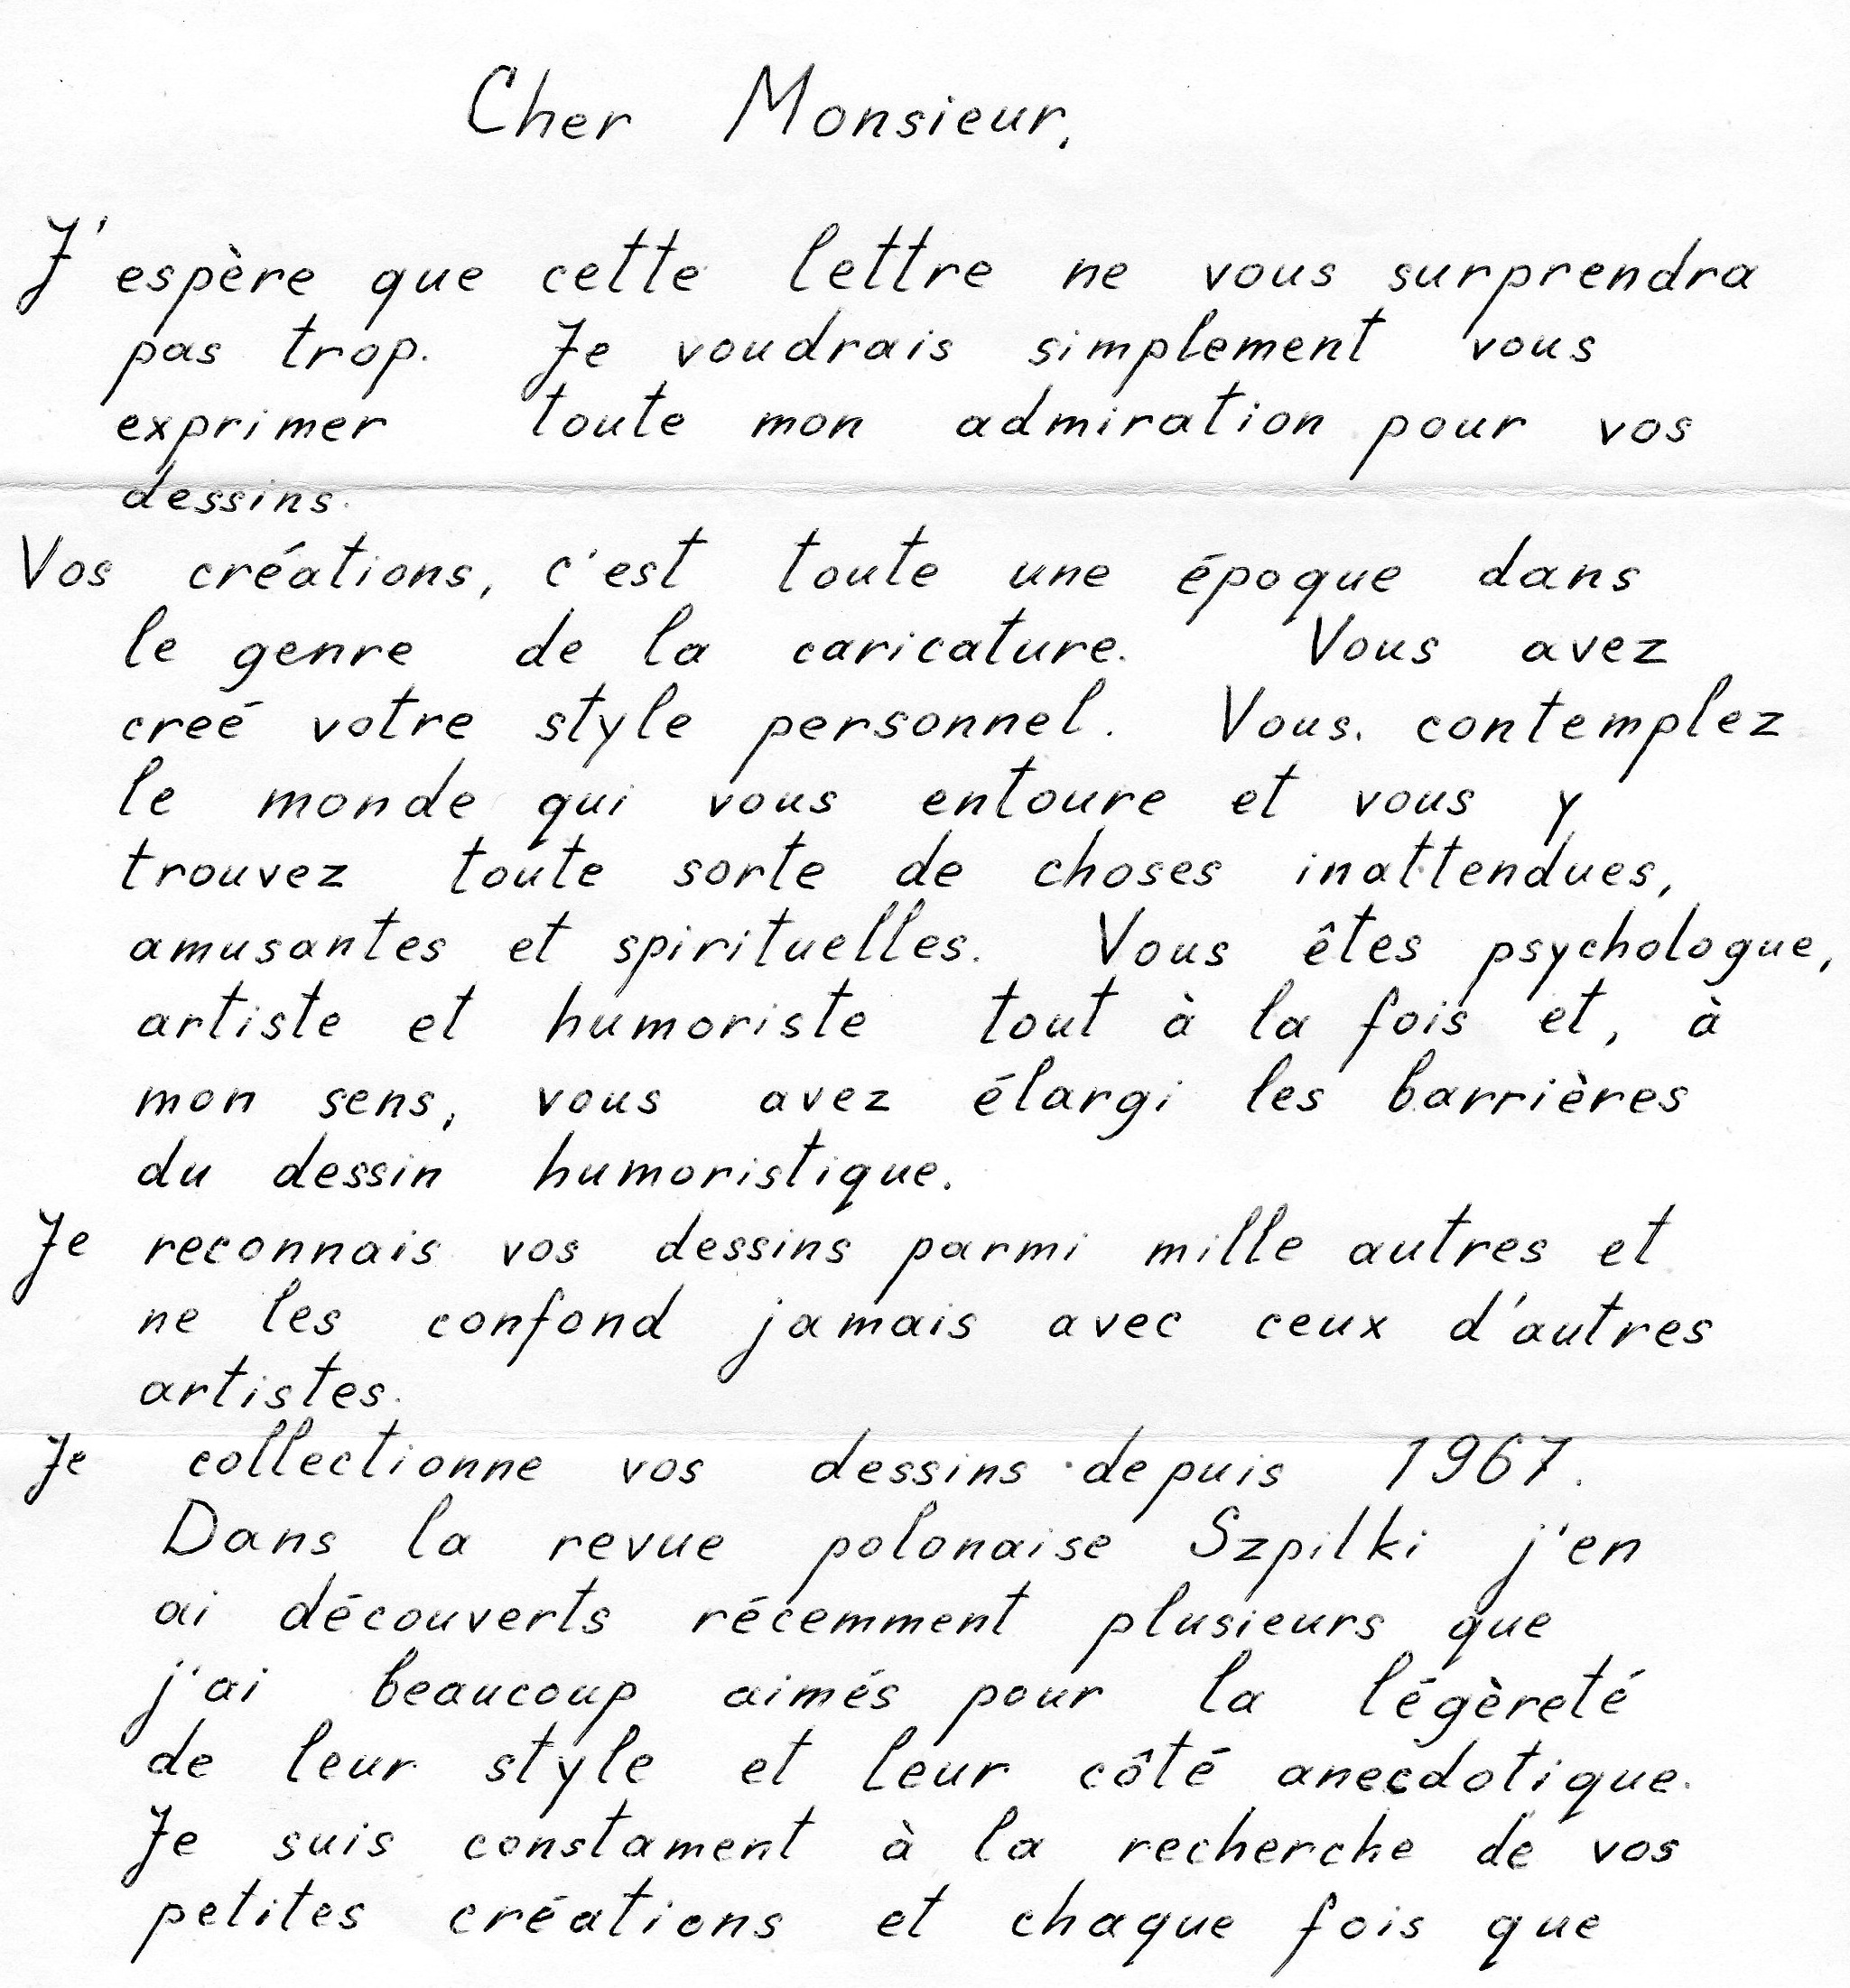 Cher Monsieur,
J'espère que cette lettre ne vous surprendra
pas trop. Je voudrais simplement vous
exprimer toute mon admiration pour vos
dessins.
Vos créations, c'est toute une époque dans
le genre de la caricature. Vous avez
creé votre style personnel. Vous. contemplez
le monde qui vous entoure et vous y
trouvez toute sorte de choses inattendues,
amusantes et spirituelles. Vous êtes psychologue,
artiste et humoriste tout à la fois et, à
mon sens, vous avez élargi les barrières
du dessin humoristique.
Je reconnais vos dessins parmi mille autres et
ne les confond jamais avec ceux d'autres
artistes.
Je collectionne vos dessins depuis 1967.
Dans la revue polonaise Szpilki j'en
ai découverts récemment plusieurs que
j'ai beaucoup aimés pour la légèreté
de leur style et leur côté anecdotique.
Je suis constament à la recherche de vos
petites créations et chaque fois que